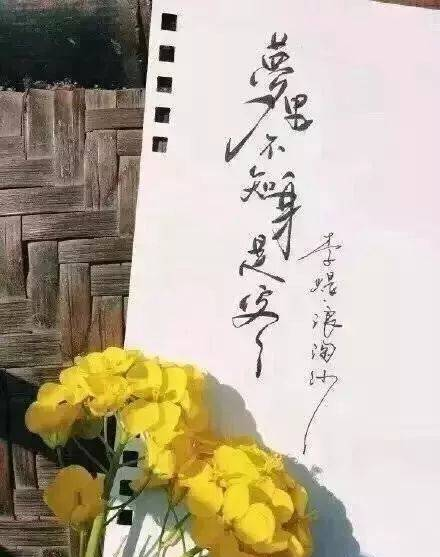 夢里不知身是客
李煜·浪淘沙